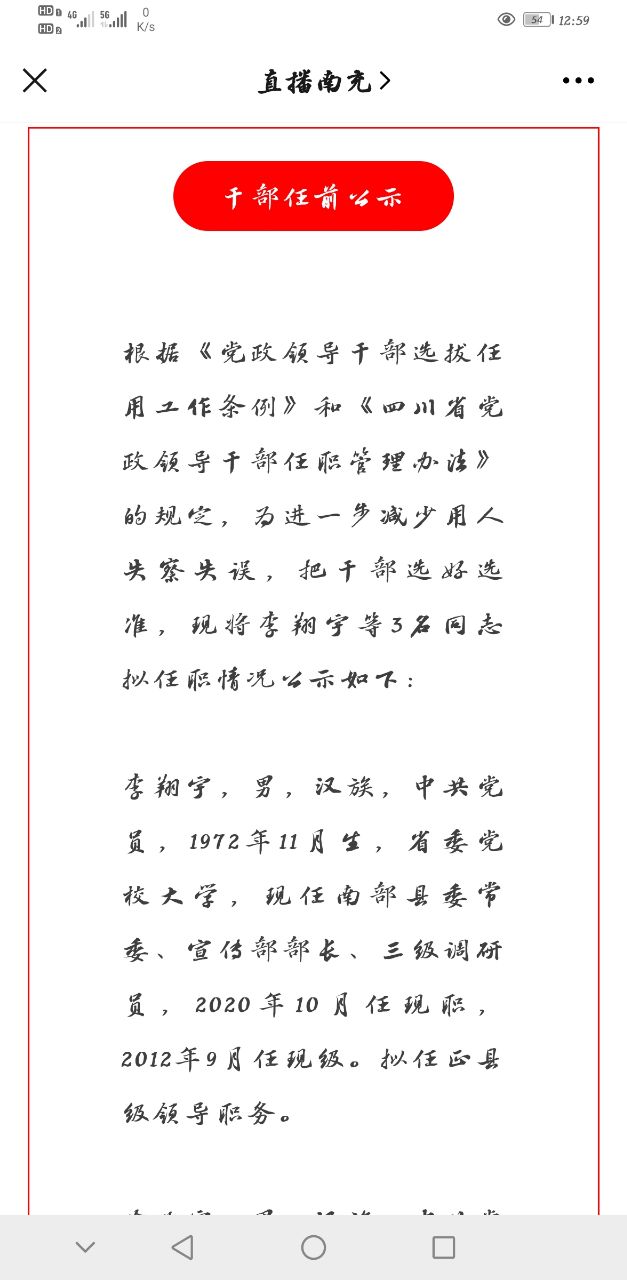 HD 1 4G 5G 0 54 12:59
HD 2 K/s
直播南充
干部任前公示
根据《党政领导干部选拔任
用工作条例》和《四川省党
政领导干部任职管理办法》
的规定，为进一步减少用人
失察失误，把干部选好选
准，现将李翔宇等3名同志
拟任职情况公示如下：
李翔宇，男，汉族，中共党
员，1972年11月生，省委党
校大学，现任南部县委常
委、宣传部部长、三级调研
员，2020年10月任现职，
2012年9月任现级。拟任正县
级领导职务。